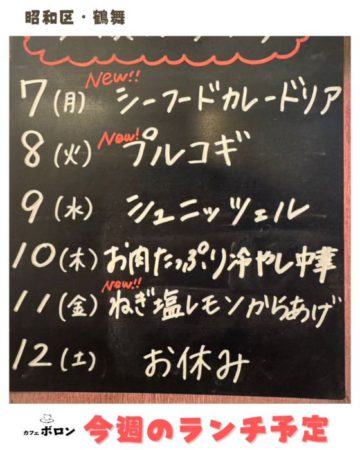 昭和区・鶴舞
7(月) New!! シーフードカレードリア
8(火) New! プルコギ
9(水) シュニッツェル
10(木) お肉たっぷり冷やし中華
11(金) New!! ねぎ塩レモンからあげ
12(土) お休み
カフェ ボロン 今週のランチ予定